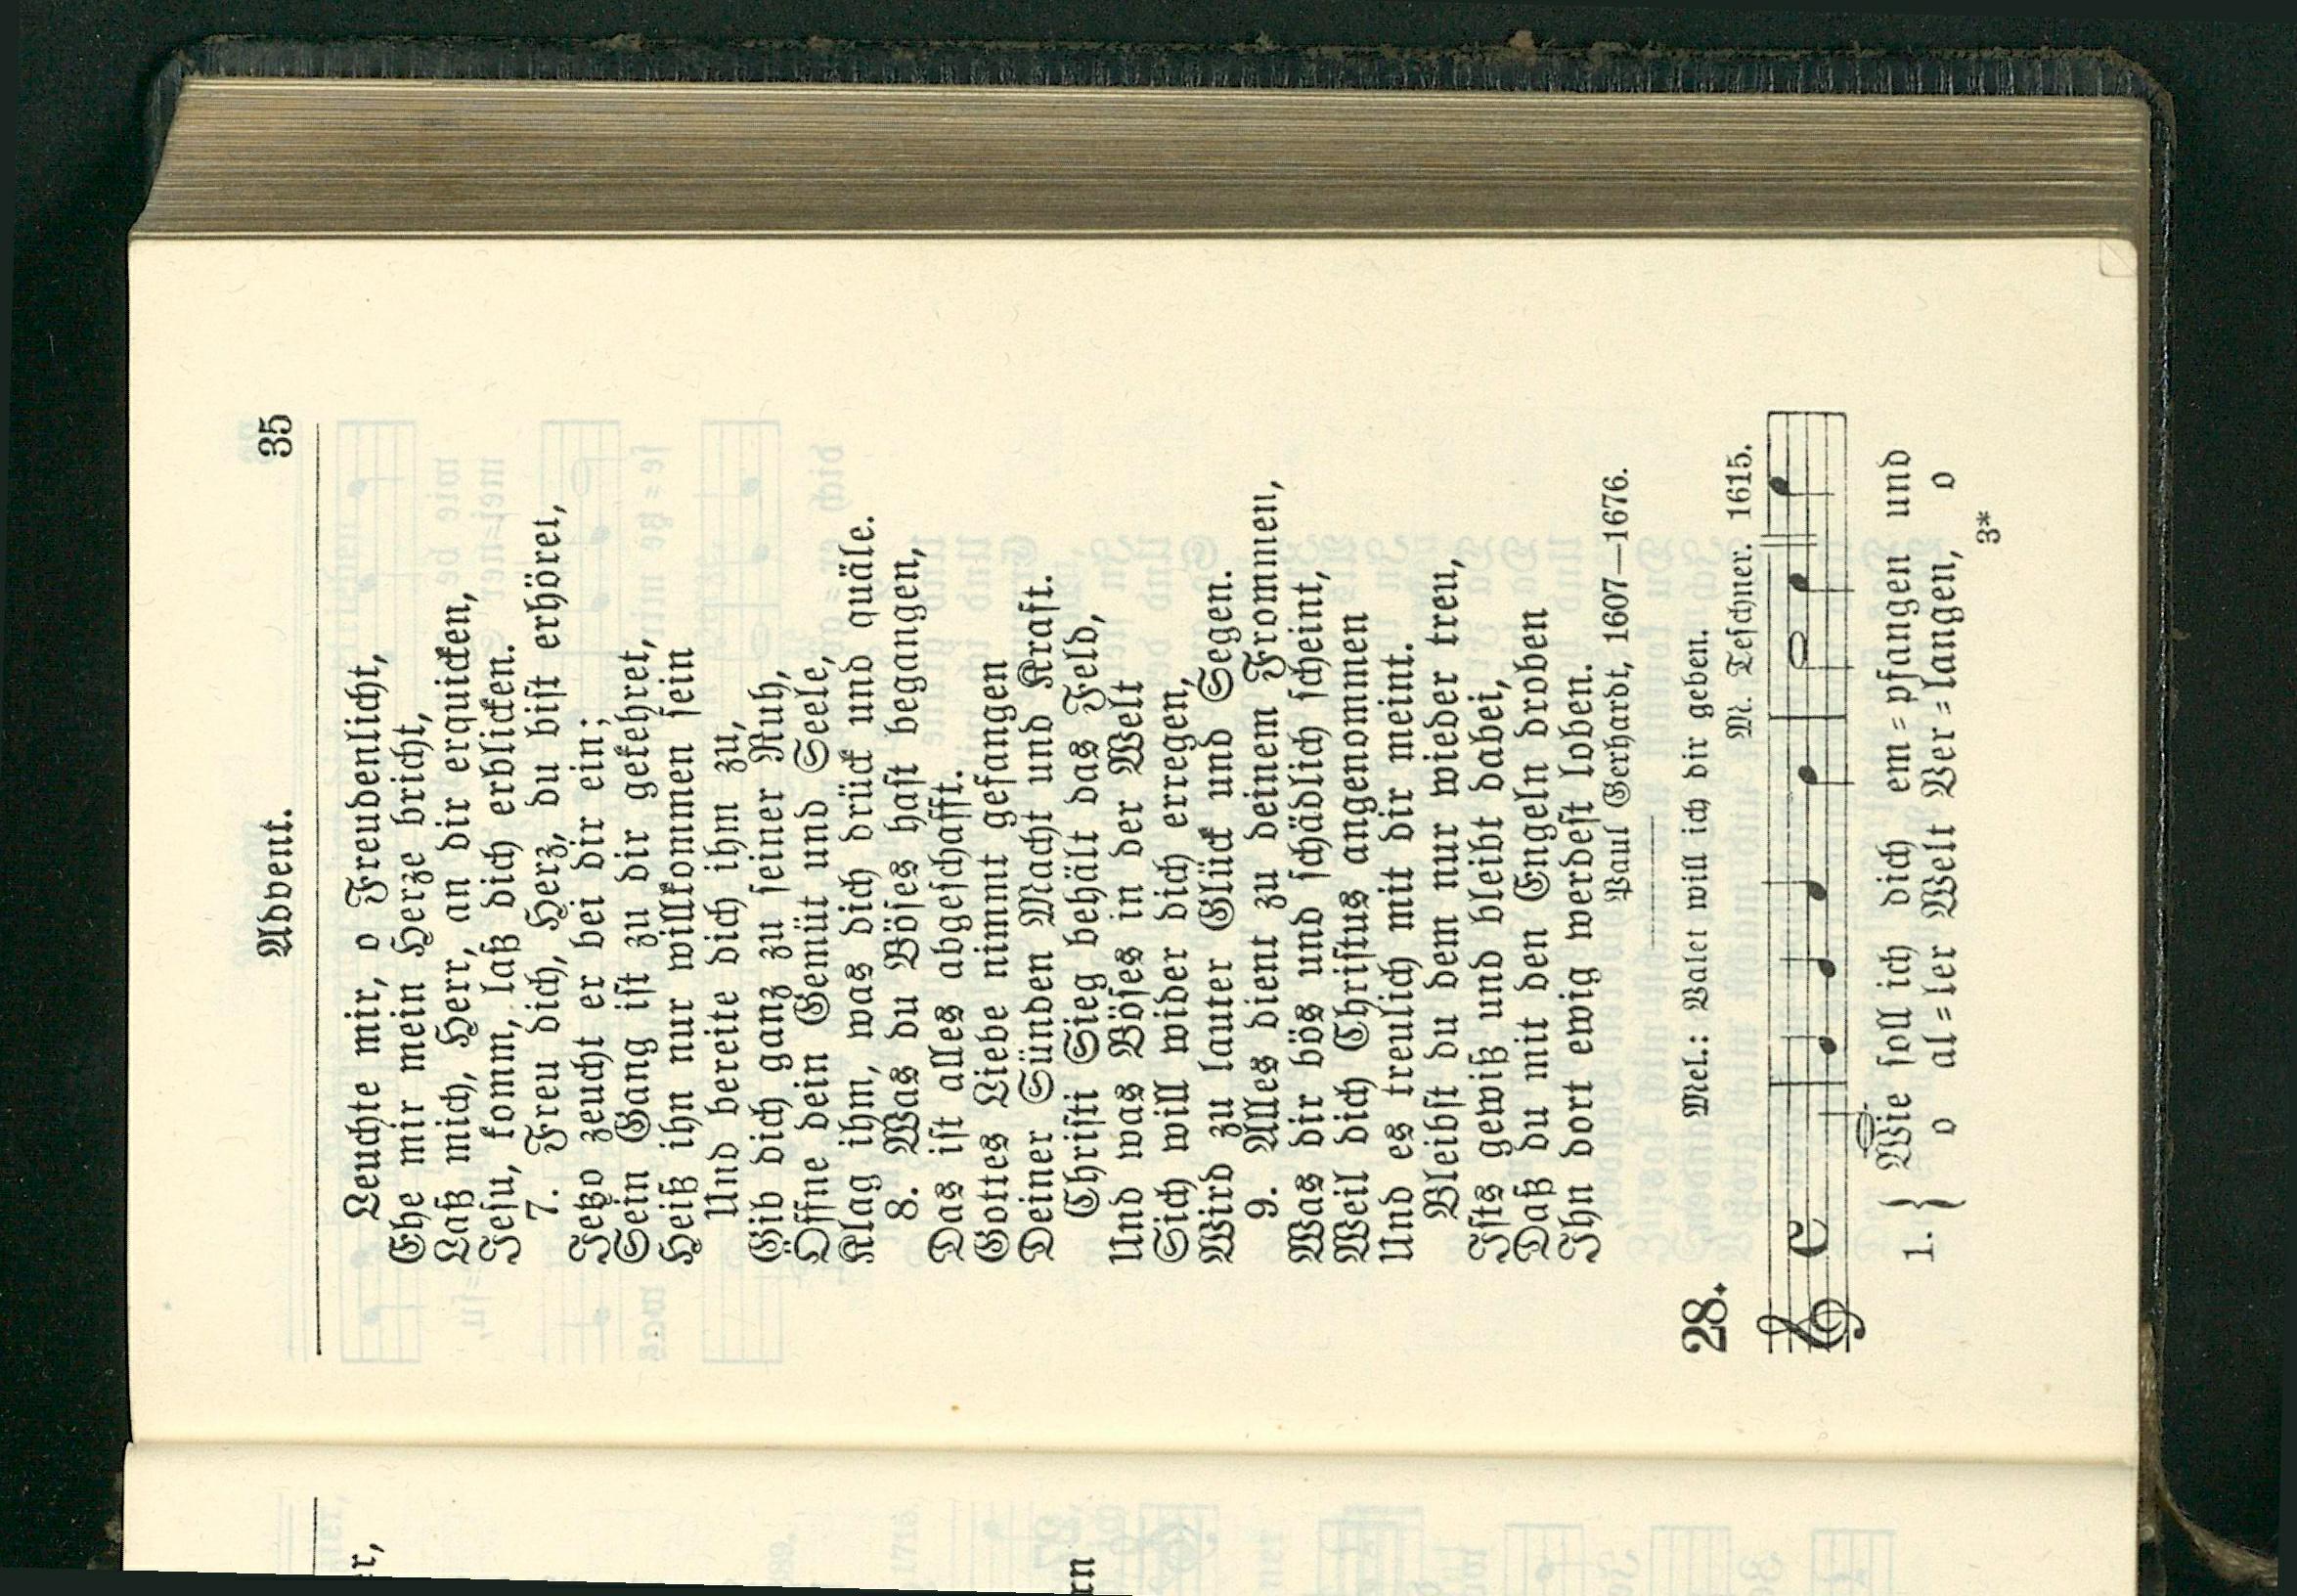 Advent. 35
Leuchte mir, o Freudenlicht,
Ehe mir mein Herze bricht,
Laß mich, Herr, an dir erquicken,
Jesu, komm, laß dich erblicken.
7. Freu dich, Herz, du bist erhöret,
Jetzo zeucht er bei dir ein;
Sein Gang ist zu dir gekehret,
Heiß ihn nur willkommen sein
Und bereite dich ihm zu,
Gib dich ganz zu seiner Ruh,
Öffne dein Gemüt und Seele,
Klag ihm, was dich drück und quäle.
8. Was du Böses hast begangen,
Das ist alles abgeschafft.
Gottes Liebe nimmt gefangen
Deiner Sünden Macht und Kraft.
Christi Sieg behält das Feld,
Und was Böses in der Welt
Sich will wider dich erregen,
Wird zu lauter Glück und Segen.
9. Alles dient zu deinem Frommen,
Was dir bös und schädlich scheint,
Weil dich Christus angenommen
Und es treulich mit dir meint.
Bleibst du dem nur wieder treu,
Ists gewiß und bleibt dabei,
Daß du mit den Engeln droben
Ihn dort ewig werdest loben.
Paul Gerhardt, 1607—1676.
28. Mel.: Valet will ich dir geben.
M. Teschner. 1615.
1. { Wie soll ich dich em=pfangen und
o al=ler Welt Ver=langen, o
3*
r,
rn